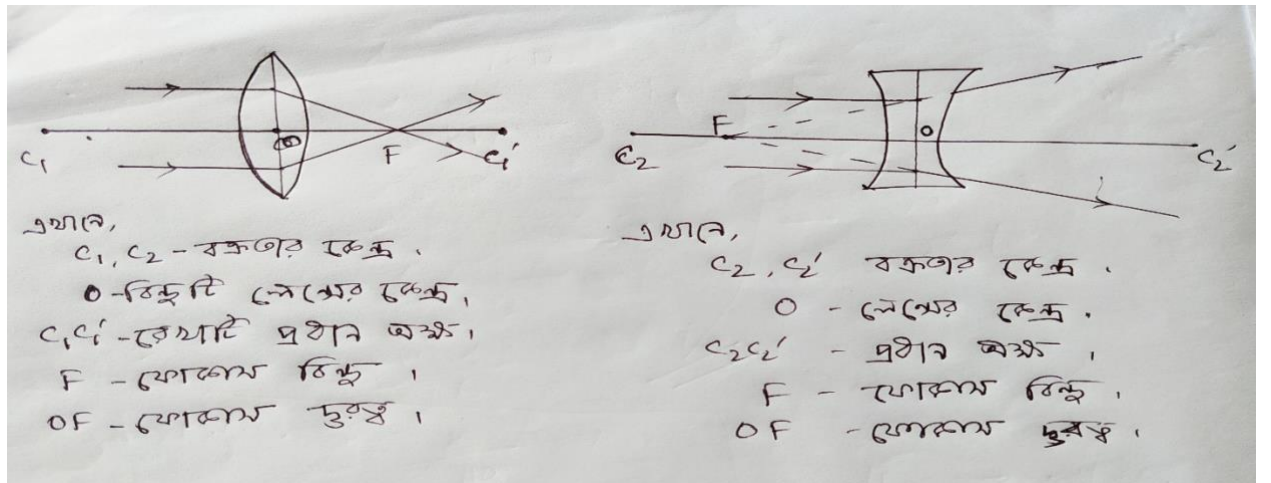 C₁
O
F
C₁′
এখানে,
C₁, C₂ - বক্রতার কেন্দ্র.
O - বিন্দুটি লেন্সের কেন্দ্র,
C₁C₁′ - রেখাটি প্রধান অক্ষ,
F - ফোকাস বিন্দু,
OF - ফোকাস দুরত্ব,
F
O
C₂
C₂′
এখানে,
C₂, C₂′ বক্রতার কেন্দ্র.
O - লেন্সের কেন্দ্র.
C₂C₂′ - প্রধান অক্ষ,
F - ফোকাস বিন্দু,
OF - ফোকাস দুরত্ব,